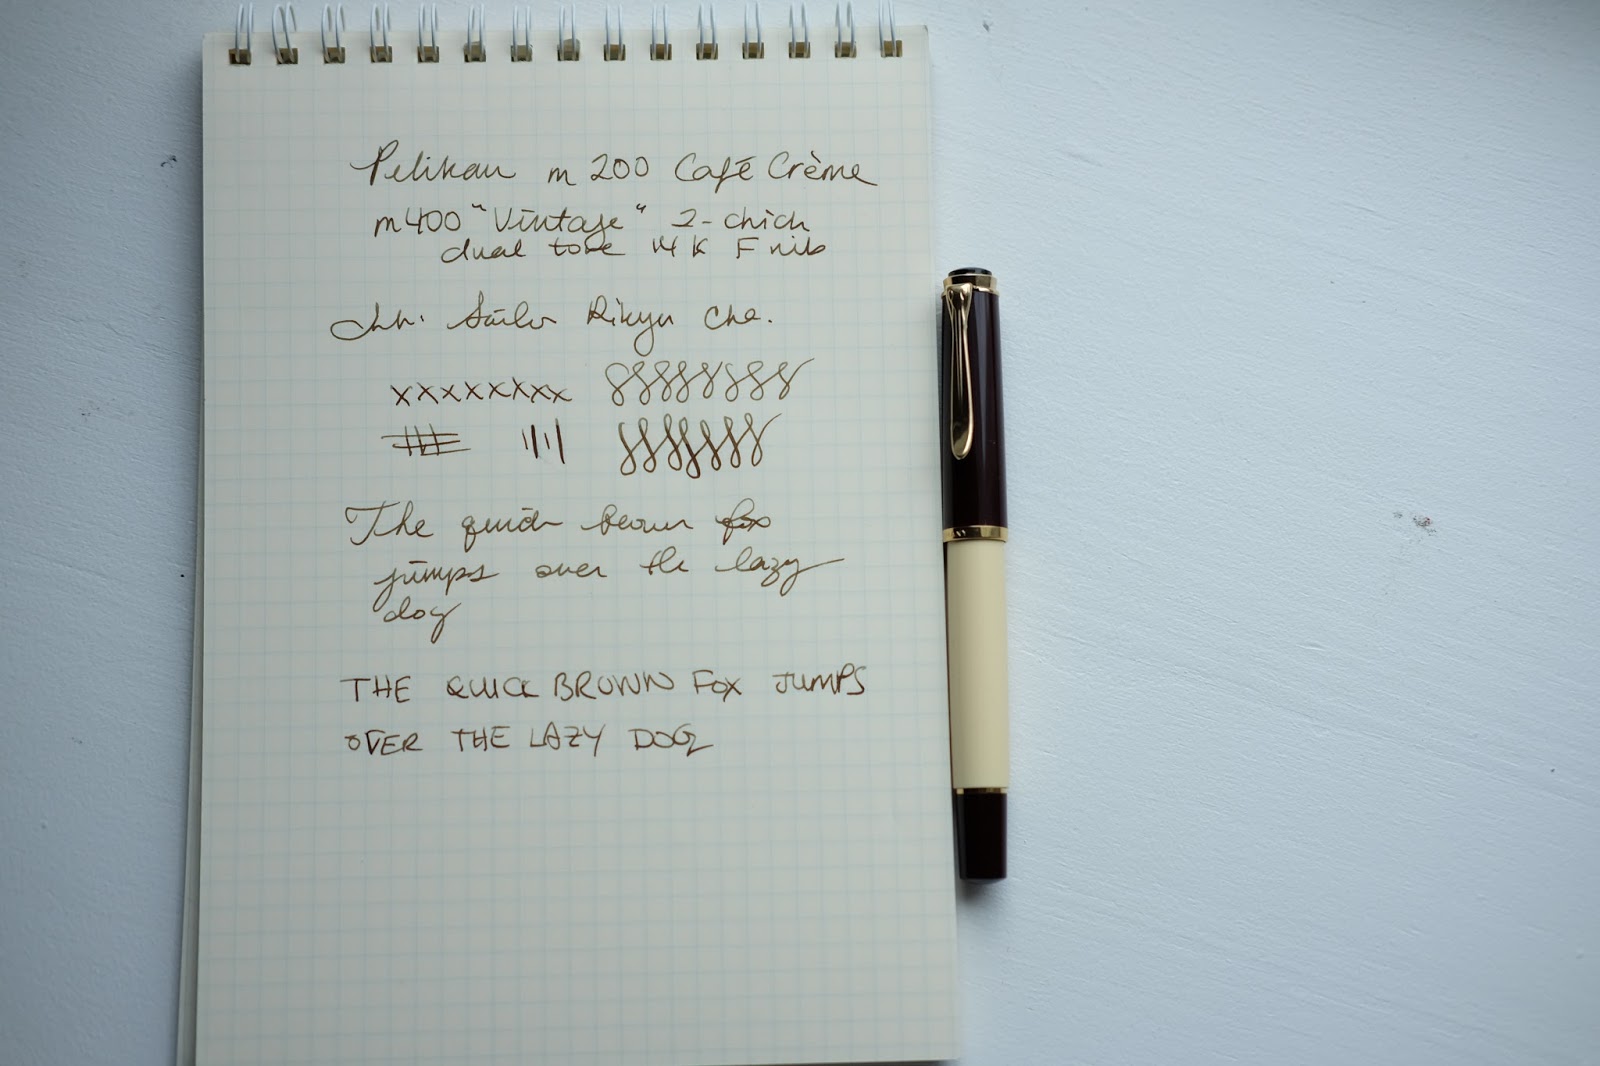 Pelikan m200 Café Crème
m400 "Vintage" 2-chick
dual tone 14K F nib
Ink. Sailor Rikyu Cha.
xxxxxxxx
The quick brown fox
jumps over the lazy
dog
THE QUICK BROWN FOX JUMPS
OVER THE LAZY DOG